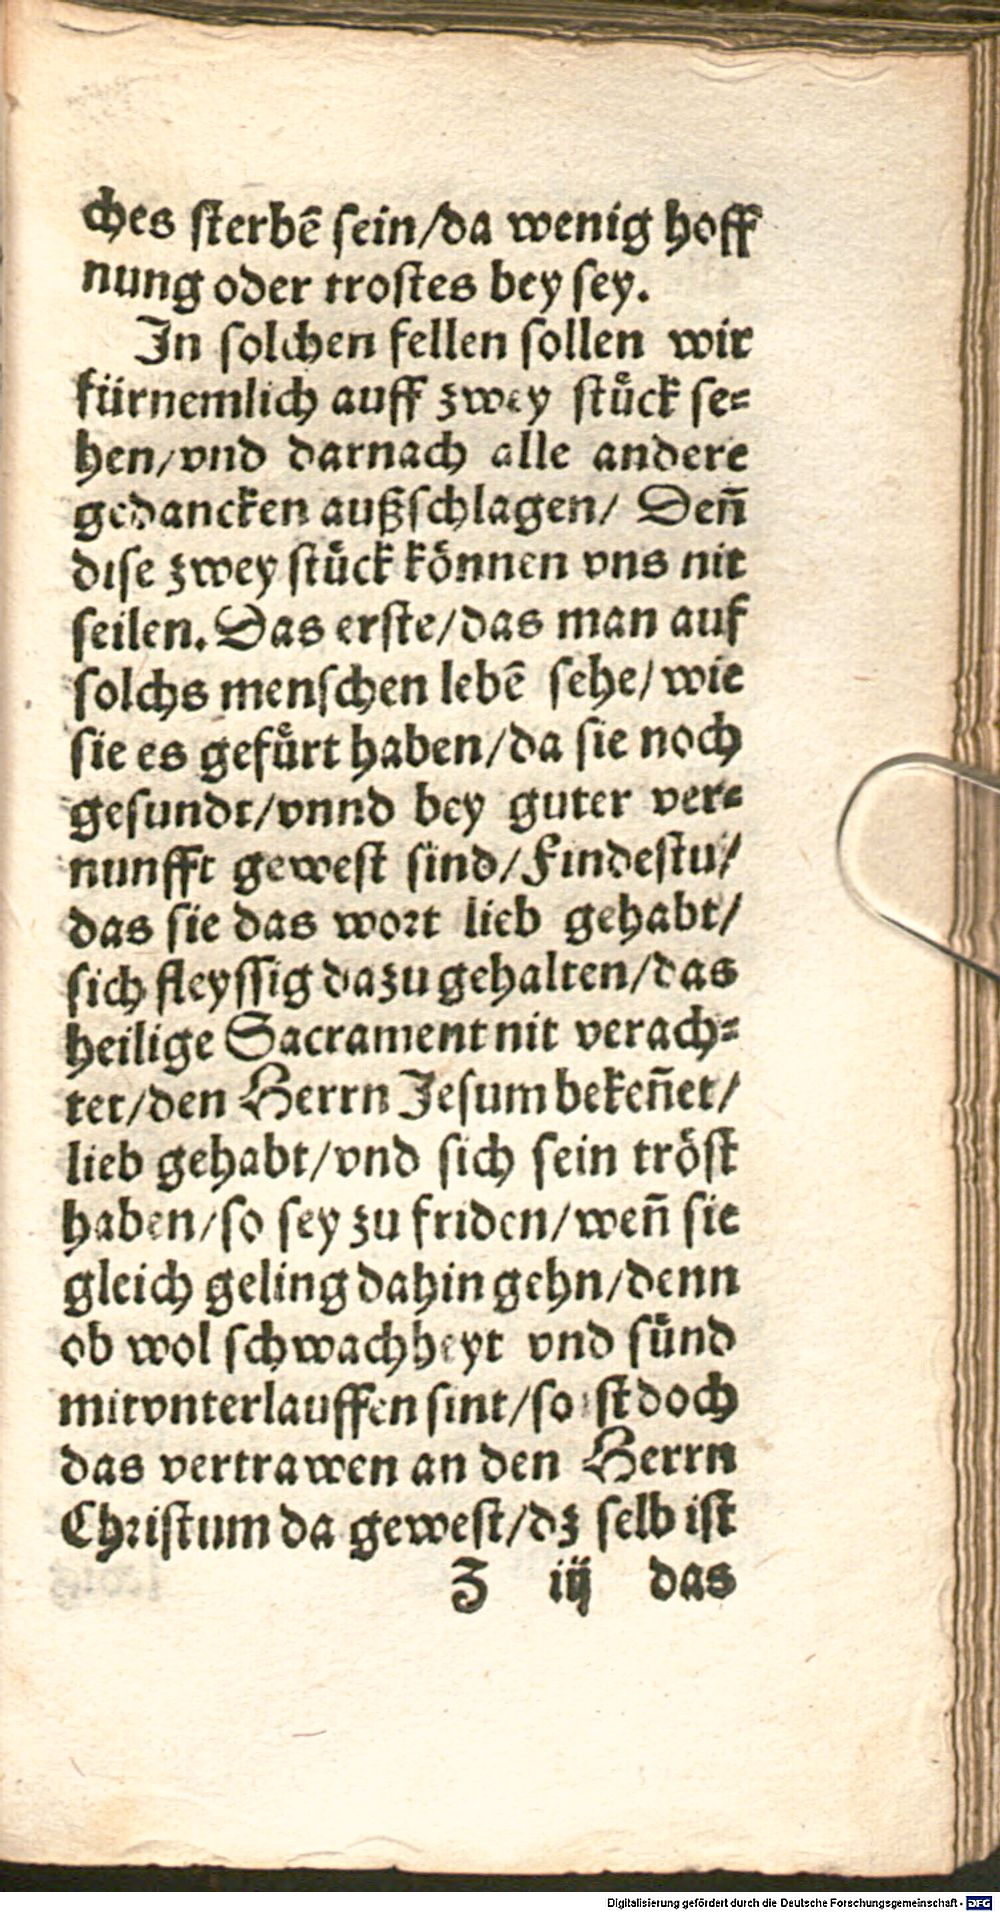 ches sterbē sein/da wenig hoff
nung oder trostes bey sey.
In solchen fellen sollen wir
fürnemlich auff zwey stück se-
hen/vnd darnach alle andere
gedancken außschlagen/ Deñ
dise zwey stück können vns nit
feilen. Das erste/das man auf
solchs menschen lebē sehe/wie
sie es gefürt haben/da sie noch
gesundt/vnnd bey guter ver-
nunfft gewest sind/Findestu/
das sie das wort lieb gehabt/
sich fleyssig dazu gehalten/das
heilige Sacrament nit verach-
tet/den Herrn Jesum bekeñet/
lieb gehabt/vnd sich sein tröst
haben/so sey zu friden/weñ sie
gleich geling dahin gehn/denn
ob wol schwachheyt vnd sünd
mitvnterlauffen sint/so ist doch
das vertrawen an den Herrn
Christum da gewest/dz selb ist
Z iij das
Digitalisierung gefördert durch die Deutsche Forschungsgemeinschaft - DFG